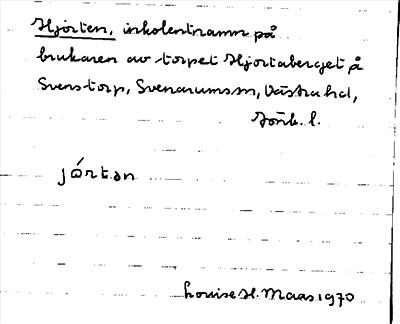 Hjorten, inkolentnamn på
brukaren av torpet Hjortaberget å
Svenstorp, Svenarums sn, Västra hd,
Jönk. l.
jórtan
Louise H. Maas 1970